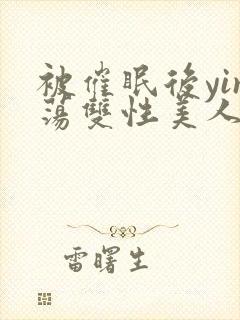 被催眠後yin
蕩雙性美人
雷曙生